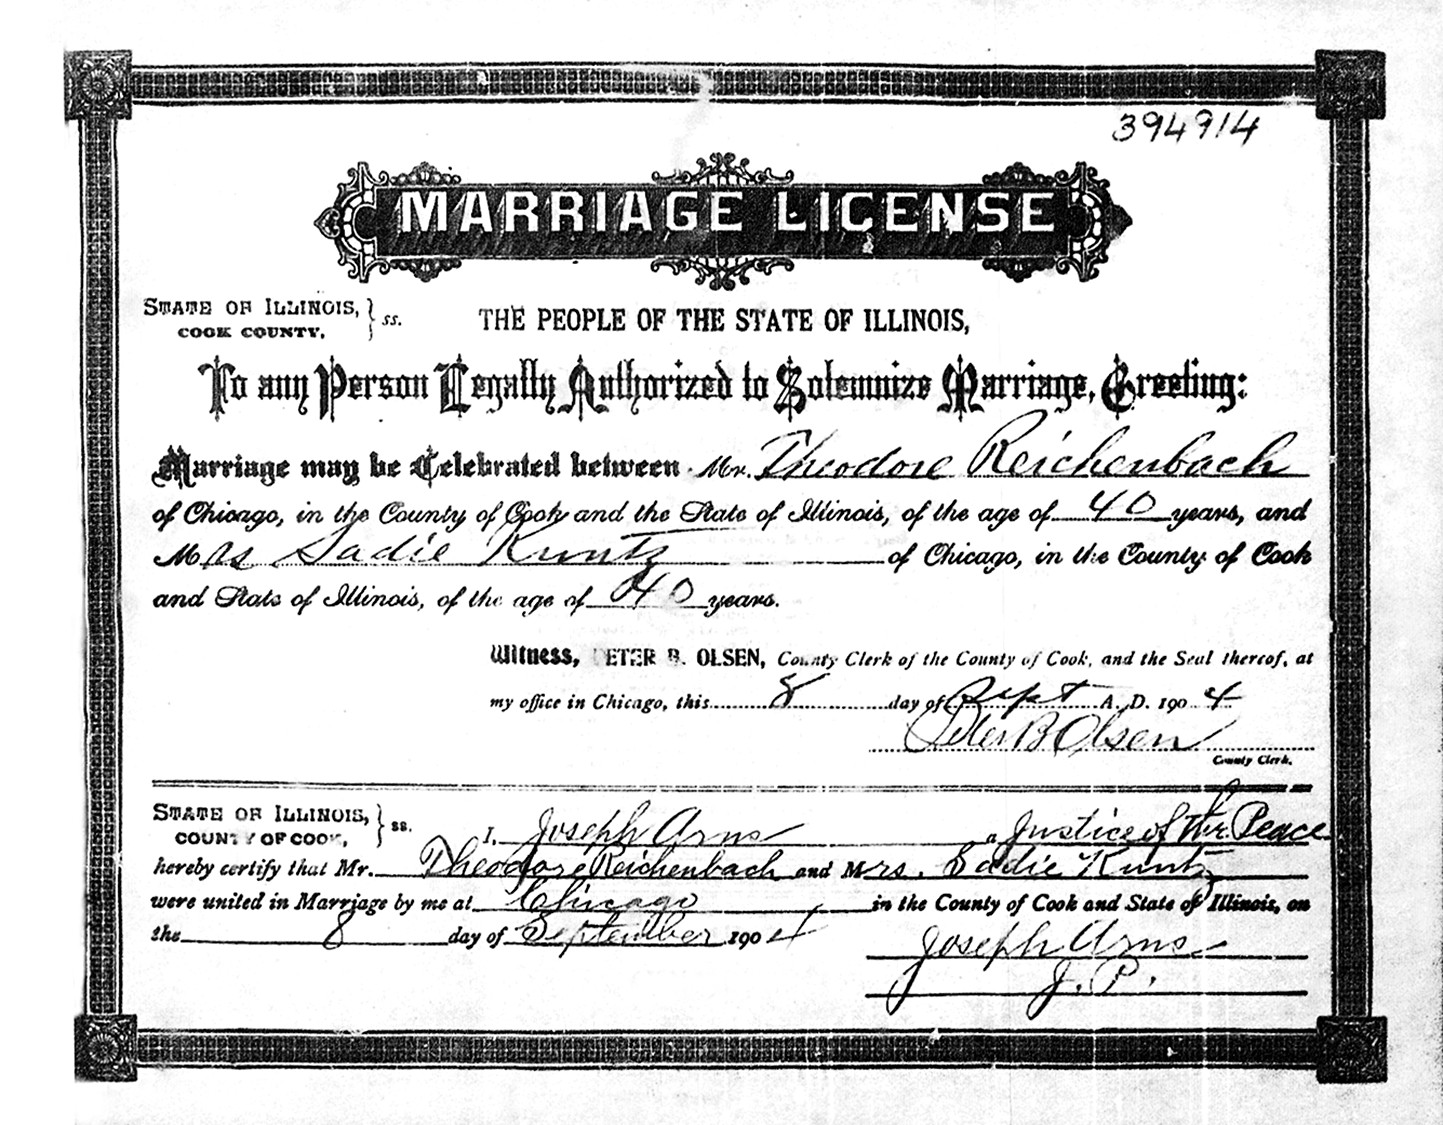 394914
MARRIAGE LICENSE
STATE OF ILLINOIS, } ss.
COOK COUNTY.
THE PEOPLE OF THE STATE OF ILLINOIS,
To any Person Legally Authorized to Solemnize Marriage, Greeting:
Marriage may be Celebrated between Mr. Theodore Reichenbach
of Chicago, in the County of Cook and the State of Illinois, of the age of 40 years, and
Mrs Sadie Kuntz of Chicago, in the County of Cook
and State of Illinois, of the age of 40 years.
Witness, PETER B. OLSEN, County Clerk of the County of Cook, and the Seal thereof, at
my office in Chicago, this 8 day of Sept A. D. 1904
Peter B Olsen
County Clerk.
STATE OF ILLINOIS, } ss.
COUNTY OF COOK,
I, Joseph Arns a Justice of the Peace
hereby certify that Mr. Theodore Reichenbach and Mrs. Sadie Kuntz
were united in Marriage by me at Chicago in the County of Cook and State of Illinois, on
the 8 day of September 1904
Joseph Arns
J. P.